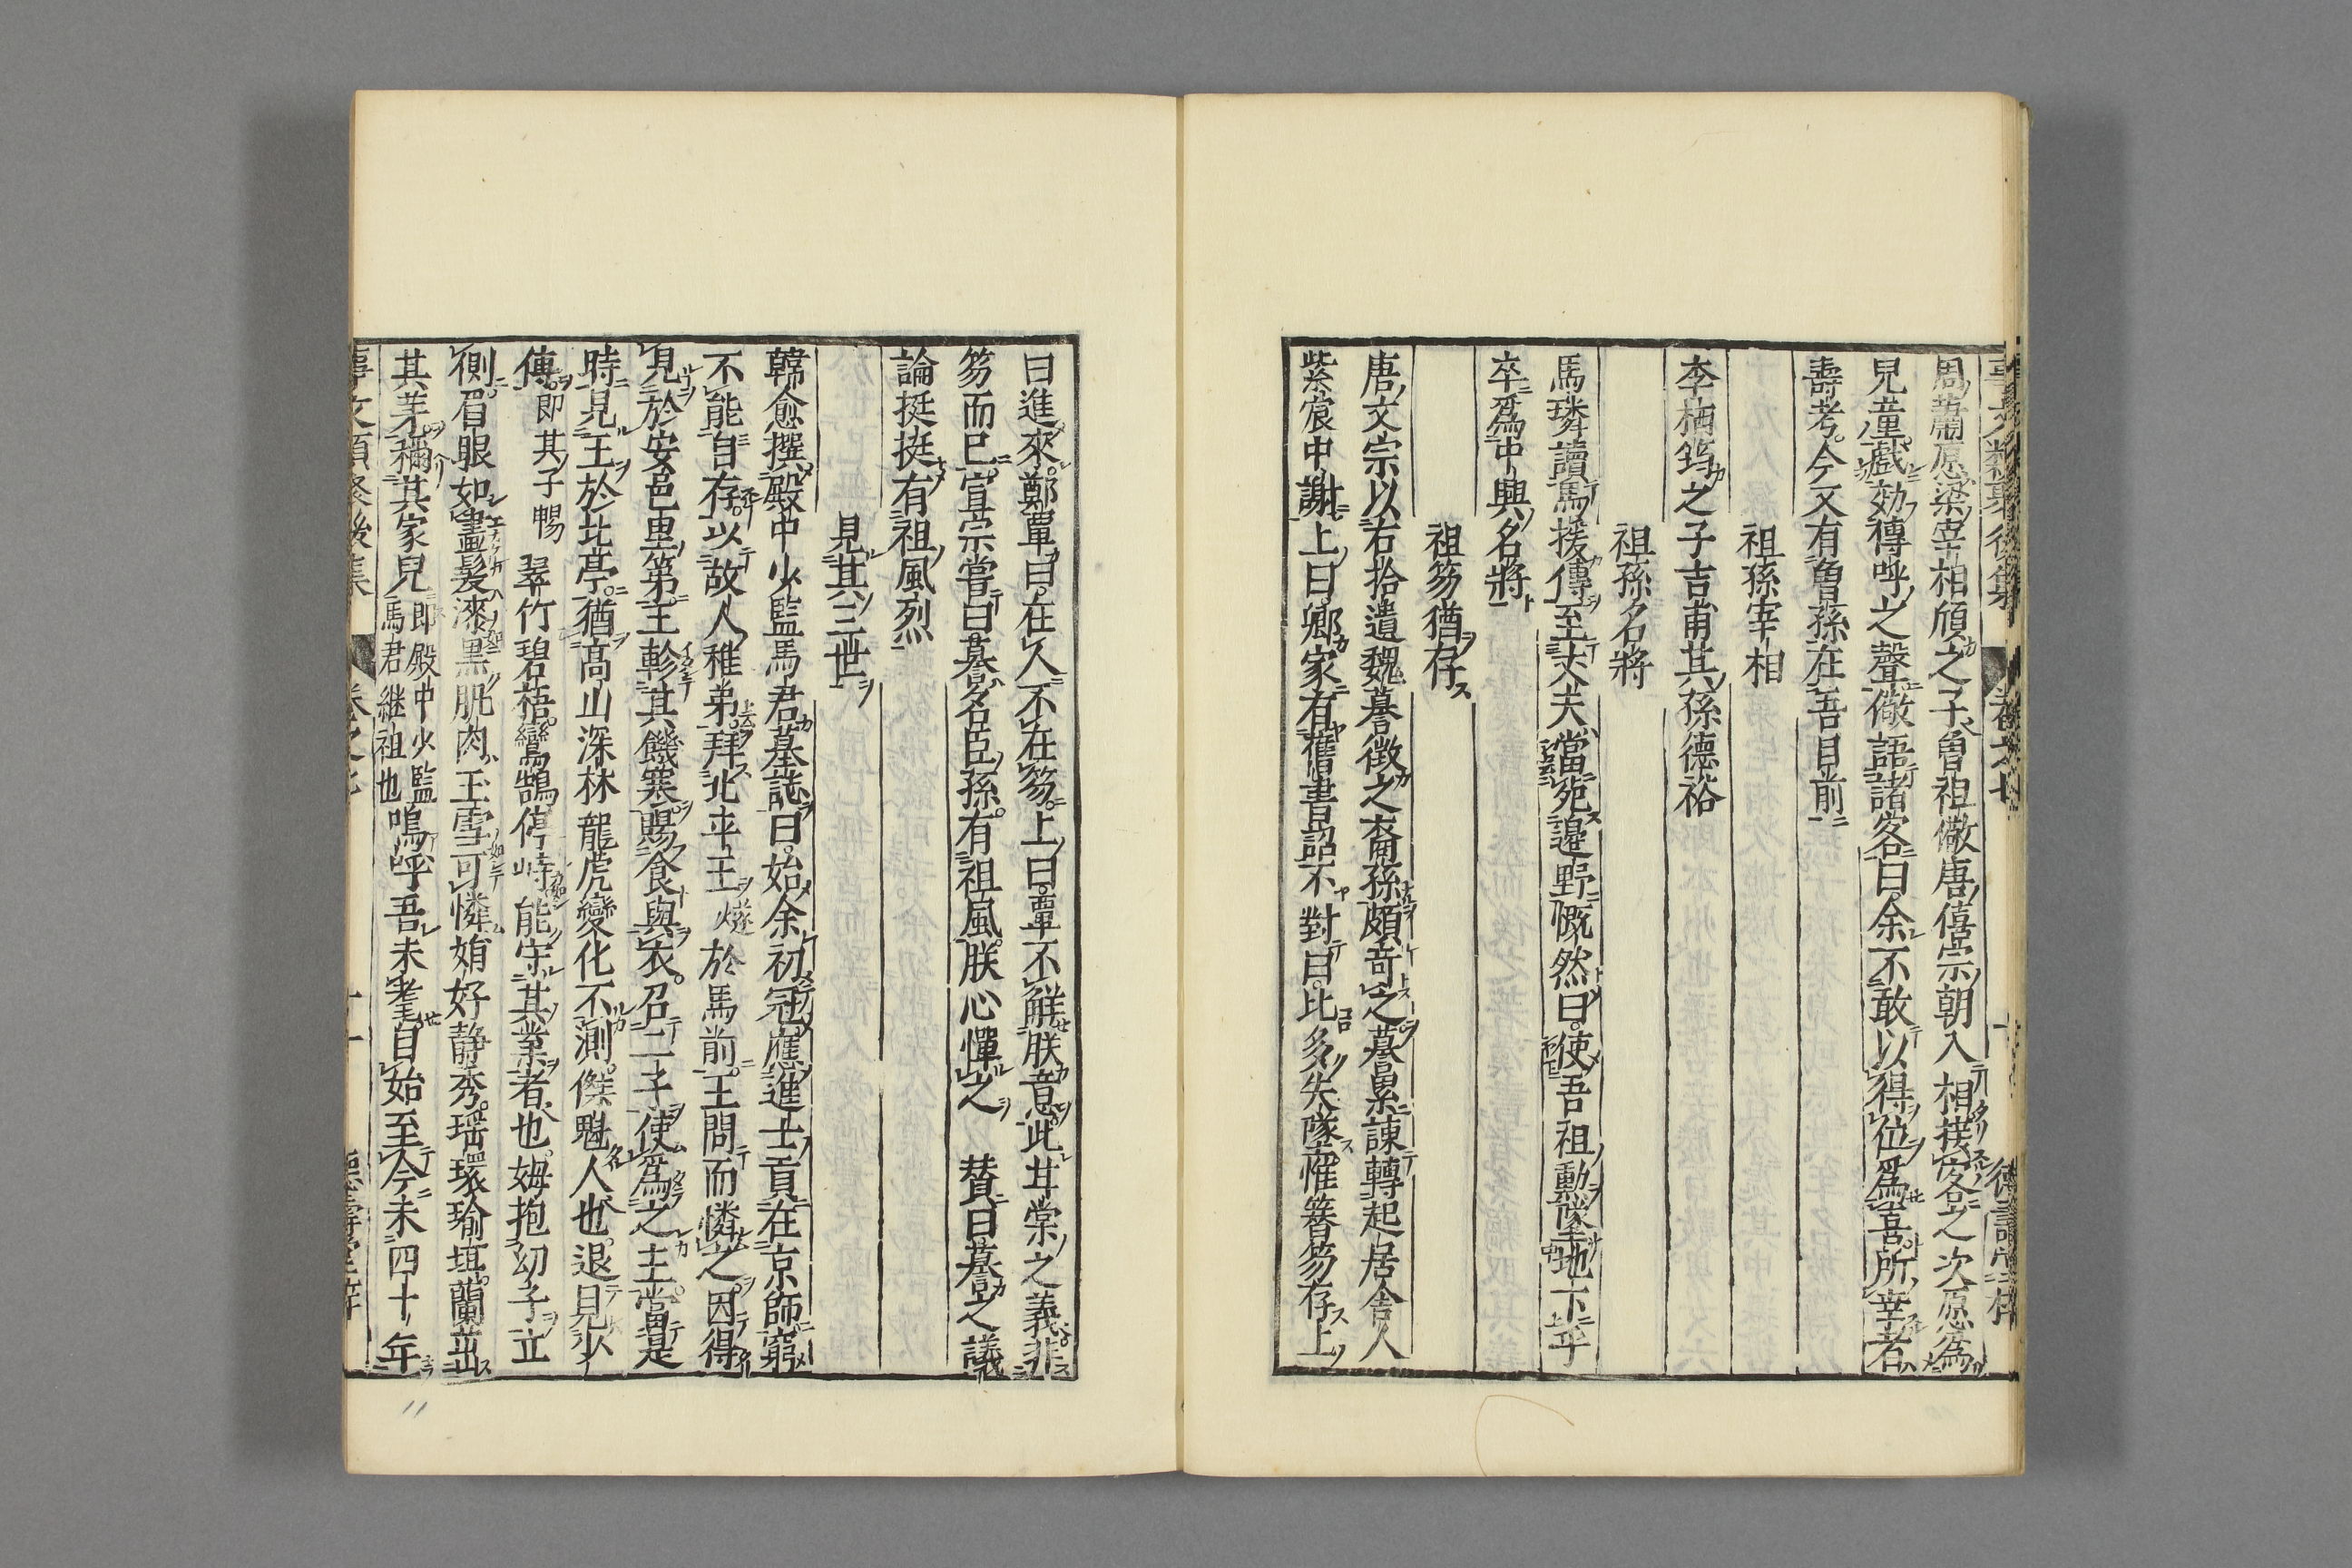 事文類聚後集 卷之七 德壽堂梓
周蕭愿梁宰相頎之子曾祖儆唐僖宗朝入相接客之次愿爲
兒童戲効傳呼之聲儆語諸客曰余不敢以得位爲喜所幸者
壽考今又有曾孫在吾目前
祖孫宰相
李栖筠之子吉甫其孫德裕
祖孫名將
馬璘讀馬援傳至大夫當死邊野慨然曰使吾祖勳墜地下乎
卒爲中興名將
祖笏猶存
唐文宗以右拾遺魏謩徵之裔孫頗奇之謩累諫轉起居舍人
紫宸中謝上曰卿家有舊書詔不對曰比多失墜惟簪笏存上
曰進來鄭覃曰在人不在笏上曰覃不觧朕意此甘棠之義非
笏而已宣宗嘗曰謩名臣孫有祖風朕心憚之 贊曰謩之議
論挺挺有祖風烈
見其三世
韓愈撰殿中少監馬君墓誌曰始余初冠應進士貢在京師窮
不能自存以故人稚弟拜北平王燧於馬前王問而憐之因得
見於安邑里第王軫其饑寒賜食與衣召二子使爲之主當是
時見王於北亭猶高山深林龍虎變化不測傑魁人也退見少
傅即其子暢翠竹碧梧鸞鵠停峙能守其業者也姆抱幼子立
側眉眼如畫髮漆黒肌肉玉雪可憐娋好静秀瑶環瑜珥蘭茁
其芽稱其家兒即殿中少監馬君継祖也嗚呼吾未耄自始至今未四十年
事文類聚後集 卷之七 十一 德壽堂梓
11